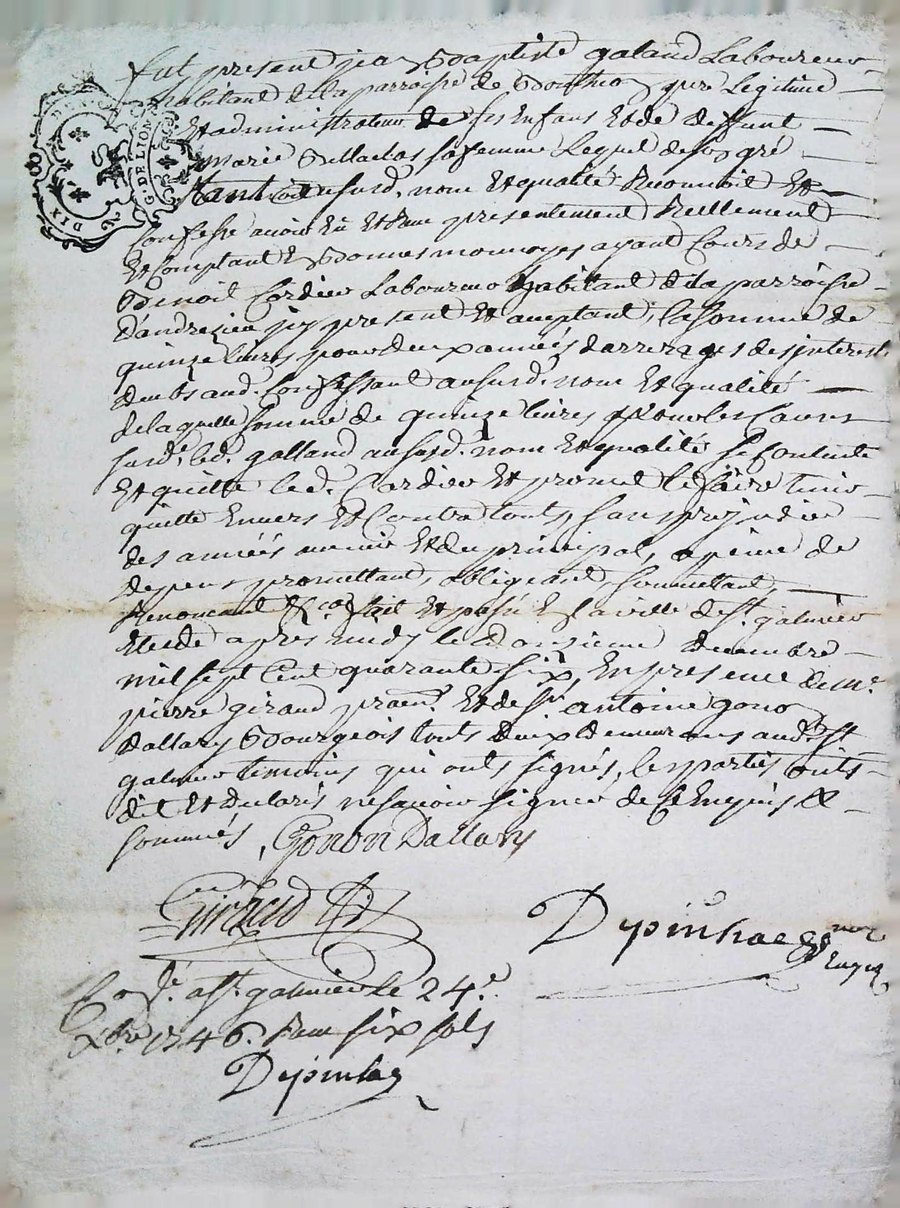 fut present jean Baptiste galand Laboureur
habitant de la parroisse de Boutheo, pere Legitime
Et administrateur de ses Enfans Et de deffunt
marie sa femme Lequel de son gré
tant audt susd. nom Et qualité Reconnoit Et
Confesse avoir Eu Et Receu presentement Reellement
Et Comptant En Bonnes monnoyes ayant Cours de
Benoit Cordier Laboureur habitant de la parroisse
D'andrezieu jcy present Et acceptant, la somme de
quinze livres pour deux années d'arrerages des jnterests
deubs aud. Confessant aususd. nom Et qualité
de laquelle somme de quinze livres pour les Causes
susd. led. galland aususd. nom Et qualité se Contente
Et quitte led. Cordier Et promet le faire tenir
quitte Envers Et Contre touts, sans prejudice
des années avenir Et du principal, a peine de
depens promettant, obligeant, soumettant,
Renoncant &ca. fait Et passé En la ville de St. galmier
Etude apres midy le Douzieme decembre
mil sept Cent quarante six, En presence de me.
pierre giraud pratn. Et de sr. antoine gonon
dallary Bourgeois touts deux demeurans aud. St
galmier temoins qui onts signés, les parties onts
dit Et declarés ne sauvoir signer de Ce Enquis &
sommés, Gonon Dallary
Giraud
Depinhac
nore
Con.lé a St. galmier le 24.e
Xbre 1746. Receu six sols
Depinhac
DIX DEN.
G. DE LION